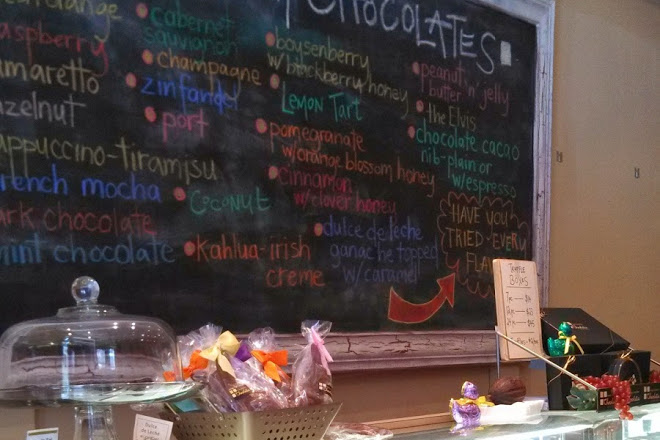 CHOCOLATES
raspberry
amaretto
hazelnut
cappuccino-tiramisu
french mocha
dark chocolate
mint chocolate
cabernet
sauvignon
champagne
zinfandel
port
Coconut
Kahlua-irish
creme
boysenberry
w/blackberry honey
Lemon Tart
pomegranate
w/orange blossom honey
cinnamon
w/clover honey
dulce de leche
ganache topped
w/caramel
peanut 'n' jelly
butter
the Elvis
chocolate cacao
nib-plain or
w/espresso
HAVE YOU
TRIED EVERY
FLAV
TRUFFLE
BOXES
Dulce
de Leche